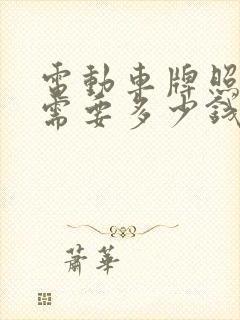 電動車牌照
需要多少錢
蕭華